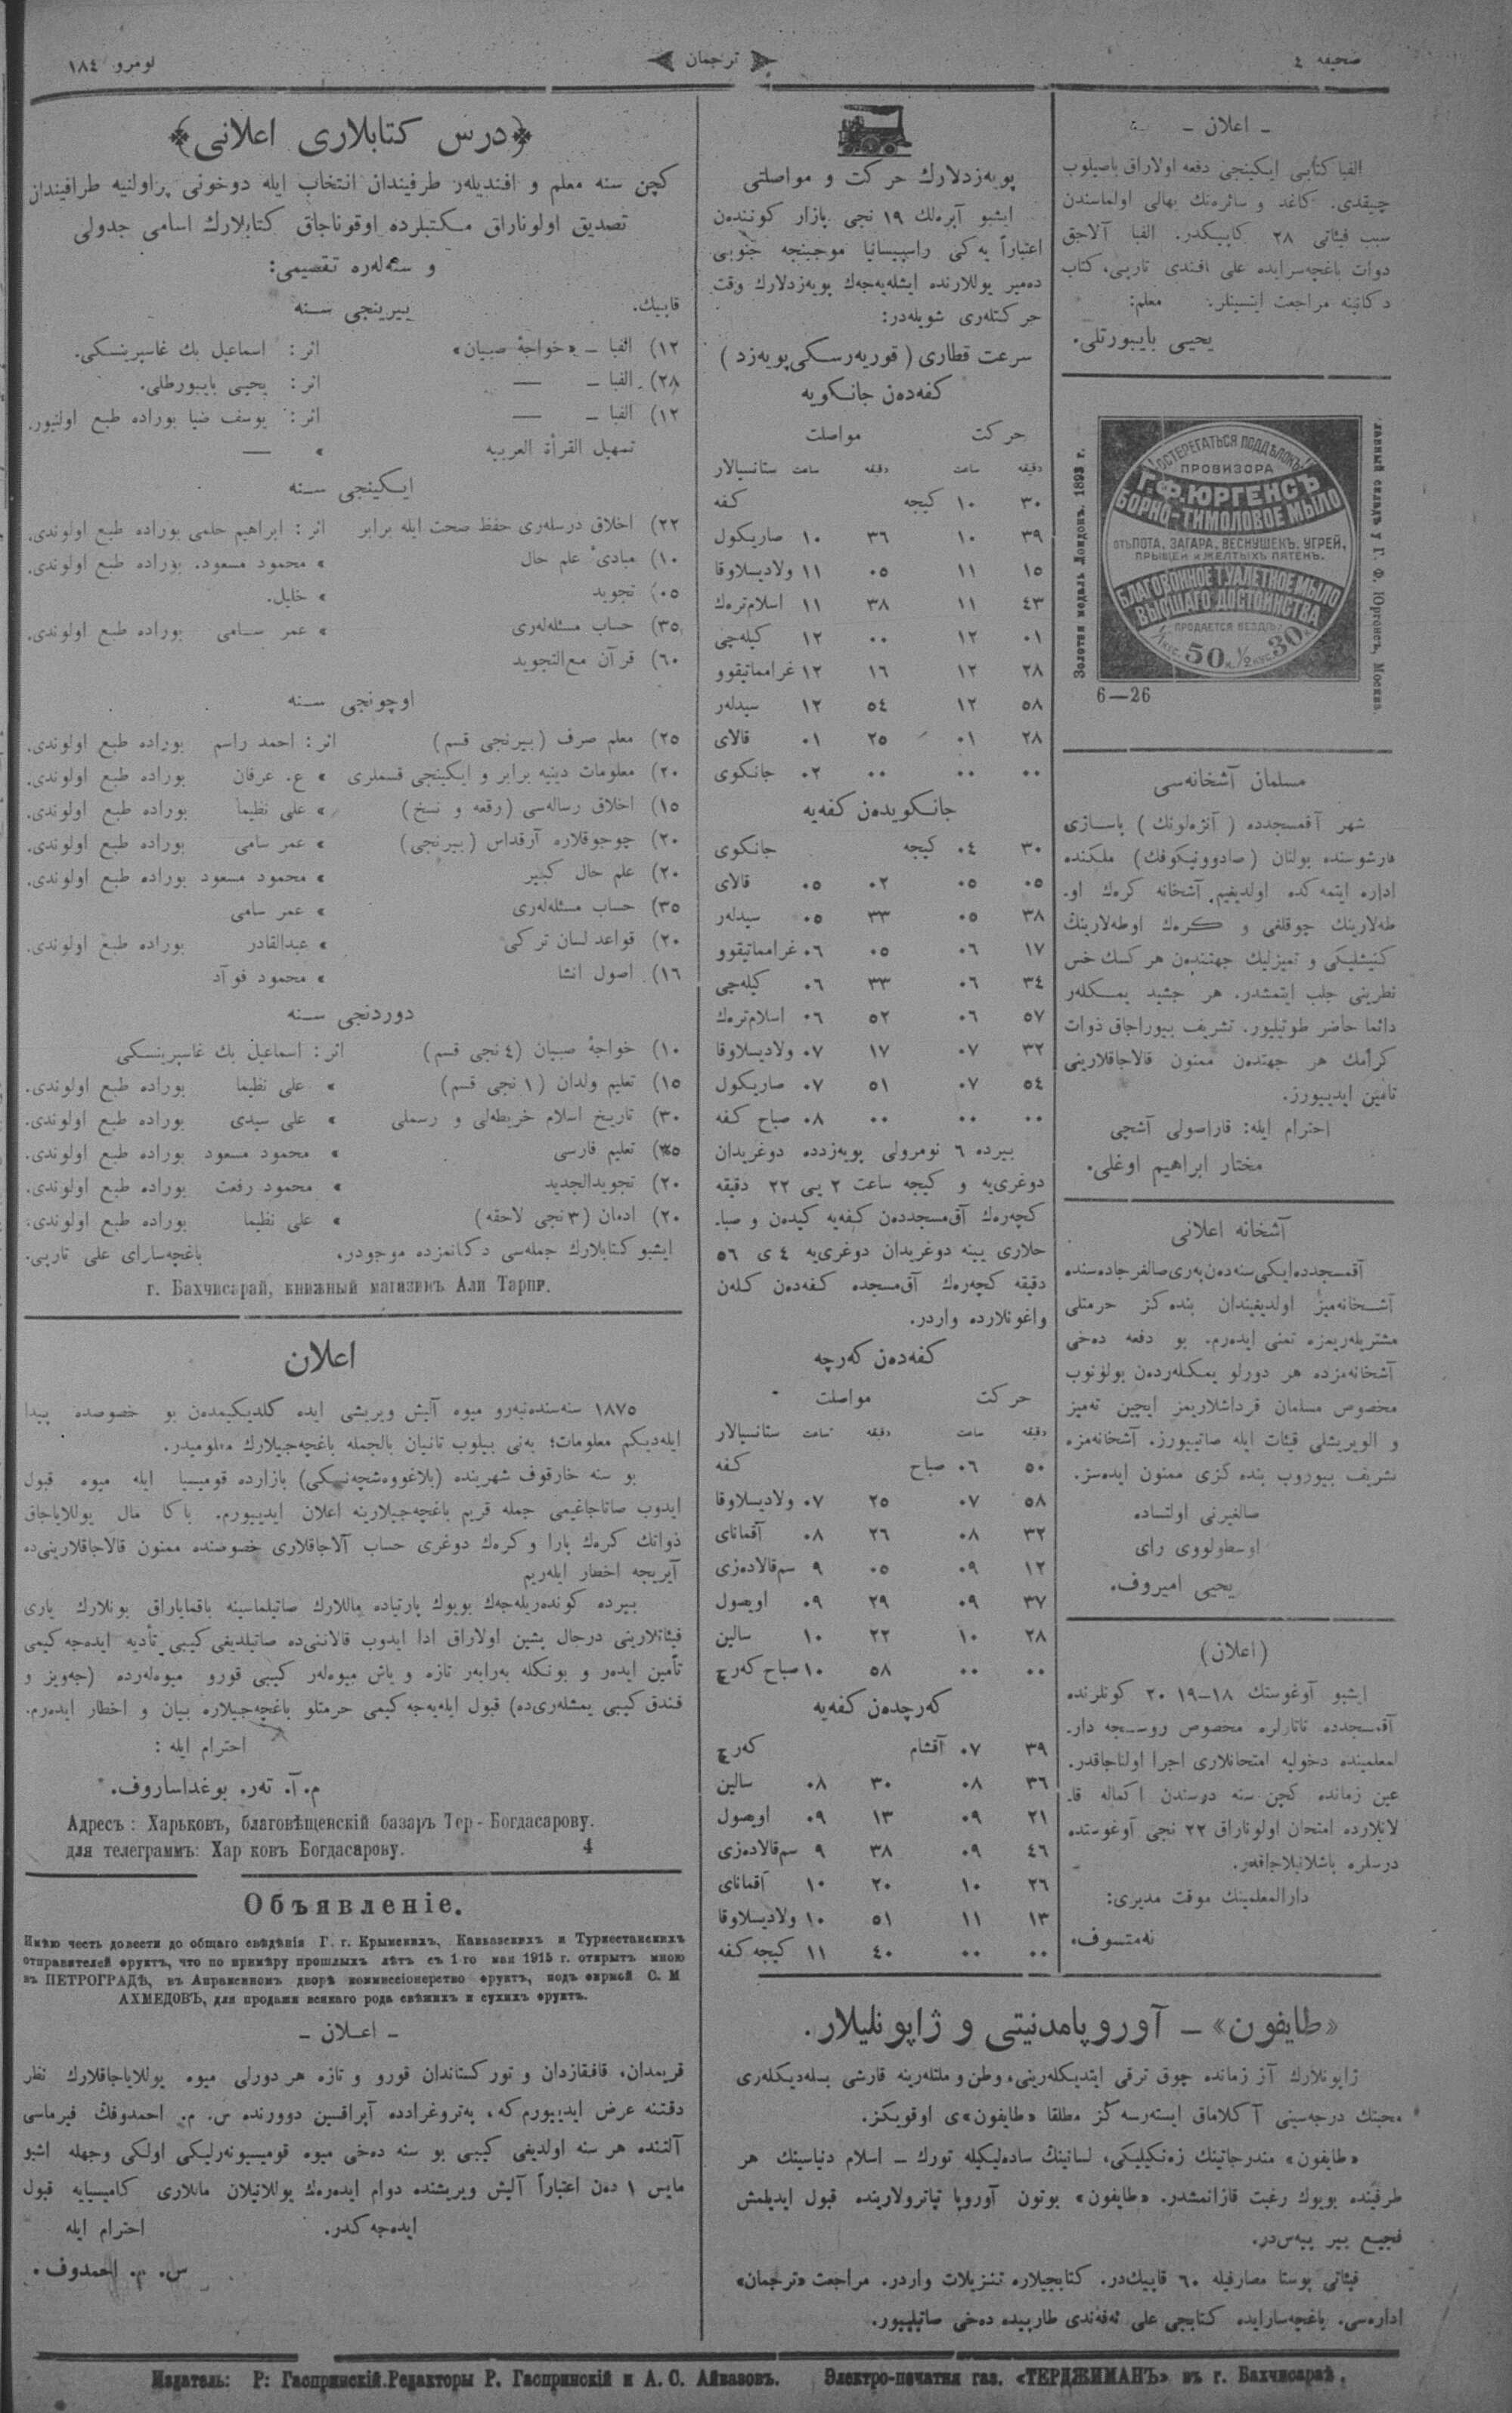 صحیفه ٤
ترجمان
نومرو ١٨٤
ـ اعلان ـ
الفبا کتابی ایکینجی دفعه اولاراق باصیلوب
چیقدی. کاغد و سائره‌نك بهالی اولماسندن
سبب فیئاتی ٢٨ کاپیکدر. الفبا آلاجق
ذوات باغچه‌سرایده علی افندی تارپی، کتاب
دکانینه مراجعت ایتسینلر. معلم:
یحیی بایبورتلی.
Главный складъ у Г. Ф. Юргенсъ, Москва.
ОСТЕРЕГАТЬСЯ ПОДДѢЛОКЪ!
ПРОВИЗОРА
Г.Ф.ЮРГЕНСЪ
БОРНО-ТИМОЛОВОЕ МЫЛО
отъ ПОТА, ЗАГАРА, ВЕСНУШЕКЪ, УГРЕЙ,
ПРЫЩЕЙ И ЖЕЛТЫХЪ ПЯТЕНЪ.
БЛАГОВОННОЕ ТУАЛЕТНОЕ МЫЛО
ВЫСШАГО ДОСТОИНСТВА
ПРОДАЕТСЯ ВЕЗДѢ
1/1 кус. 50 к. 1/2 кус. 30 к.
Золотая медаль Лондонъ. 1893 г.
6—26
مسلمان آشخانه‌سی
شهر آقمسجدده ( آنژه‌لونك ) پاساژی
قارشوسنده بولنان (صادوونیکوفك) ملکنده
اداره ایتمه کده اولدیغیم آشخانه کرەك او۔
طه‌لارینك چوقلغی و کرەك اوطه‌لارینڭ
کنیشلیکی و تمیزلیك جهتندەن هر کسك خس
نظرینی جلب ایتمشدر. هر جشید یمکلەر
دائما حاضر طوتیلیور. تشریف بیوراجاق ذوات
کرامك هر جهتدەن ممنون قالاجاقلارینی
تامین ایدییورز.
احترام ایله: قاراصولی آشچی
مختار ابراهیم اوغلی.
آشخانه اعلانی
آقمسجدده ایکی سنه‌دەن بەری صالغر جاده‌سنده
آشخانه‌میز اولدیغیندان بنده کز حرمتلی
مشتریلەریمزه تمنی ایدەرم. بو دفعه دەخی
آشخانه‌مزده هر دورلو یمکلەردەن بولونوب
مخصوص مسلمان قرداشلاریمز ایچین تەمیز
و الویریشلی فیئات ایله صاتیبورز. آشخانه‌مزه
تشریف بیوروب بنده کزی ممنون ایدەسز.
صالغیرنی اولتساده
اوسطولووی رای
یحیی امیروف.
(اعلان)
ایشبو آوغوستك ١٨–١٩ ٢٠ کونلرنده
آقمسجدده تاتارلره مخصوص روسجه دار۔
لمعلمینده دخولیه امتحانلاری اجرا اولناجاقدر.
عین زمانده کچن سنه درسندن اکماله قا۔
لانلارده امتحان اولوناراق ٢٢ نجی آوغوستده
درسلره باشلانیلاجاقدر.
دارالمعلمینك موقت مدیری:
نه‌متسوف.
پویه‌زدلارك حرکت و مواصلتی
ایشبو آپرەلك ١٩ نجی پازار کونندەن
اعتباراً یه‌کی راسپیسانیا موجبنجه جنوبی
دەمیر یوللارنده ایشلەیەجەك پویه‌زدلارك وقت
حرکتلەری شویلەدر:
سرعت قطاری ( قوریه‌رسکی پویه‌زد )
کفه‌دەن جانکویه
حرکت مواصلت
دقیقه ساعت دقیقه ساعت ستانسیالار
٣٠ ١٠ کیجه کفه
٣٩ ١٠ ٣٦ ١٠ صاریکول
١٥ ١١ ٠٥ ١١ ولادیسلاوقا
٤٣ ١١ ٣٨ ١١ اسلام‌ترەك
٠١ ١٢ ٠٠ ١٢ کیله‌چی
٢٨ ١٢ ١٦ ١٢ غراماتیقوو
٥٨ ١٢ ٥٤ ١٢ سیدلەر
٢٨ ٠١ ٢٥ ٠١ قالای
٠٠ ٠٠ ٠٠ ٠٢ جانکوی
جانکویدەن کفه‌یه
٣٠ ٠٤ کیجه جانکوی
٠٥ ٠٥ ٠٢ ٠٥ قالای
٣٨ ٠٥ ٣٣ ٠٥ سیدلەر
١٧ ٠٦ ٠٥ ٠٦ غراماتیقوو
٣٤ ٠٦ ٣٣ ٠٦ کیله‌چی
٥٧ ٠٦ ٥٢ ٠٦ اسلام‌ترەك
٣٢ ٠٧ ١٧ ٠٧ ولادیسلاوقا
٥٤ ٠٧ ٥١ ٠٧ صاریکول
٠٠ ٠٠ ٠٠ ٠٨ صباح کفه
بیرده ٦ نومرولی پویه‌زدده دوغریدان
دوغری‌یه و کیجه ساعت ٢ یی ٢٢ دقیقه
کچەرەك آق‌مسجددەن کفه‌یه کیدەن و صبا۔
حلاری یینه دوغریدان دوغری‌یه ٤ ی ٥٦
دقیقه کچەرەك آق‌مسجده کفه‌دەن کلەن
واغونلارده واردر.
کفه‌دەن کەرچه
حرکت مواصلت
دقیقه ساعت دقیقه ساعت ستانسیالار
٥٠ ٠٦ صباح کفه
٥٨ ٠٧ ٢٥ ٠٧ ولادیسلاوقا
٣٢ ٠٨ ٢٦ ٠٨ آقمانای
١٢ ٠٩ ٠٥ ٩ سم‌قالادەزی
٣٧ ٠٩ ٢٩ ٠٩ اویصول
٢٨ ١٠ ٢٢ ١٠ سالین
٠٠ ٠٠ ٥٨ ١٠ صباح کەرچ
کەرچدەن کفه‌یه
٣٩ ٠٧ آقشام کەرچ
٣٦ ٠٨ ٣٠ ٠٨ سالین
٢١ ٠٩ ١٣ ٠٩ اویصول
٤٦ ٠٩ ٣٨ ٩ سم‌قالادەزی
٢٦ ١٠ ٢٠ ١٠ آقمانای
١٣ ١١ ٥١ ١٠ ولادیسلاوقا
٠٠ ٠٠ ٤٠ ١١ کیجه کفه
«طایفون» ـ آوروپا مدنیتی و ژاپونلیلار.
ژاپونلارك آز زمانده چوق ترقی ایتدیکلەرینی، وطن و ملتلەرینه قارشی بسله‌دیکلەری
محبتك درجه‌سینی آکلاماق ایستەرسه‌کز مطلقا «طایفون»ی اوقویکز.
«طایفون» مندرجاتینك زەنکیلیکی، لسانینڭ ساده‌لیکیله تورك ـ اسلام دنیاسینك هر
طرفینده بویوك رغبت قازانمشدر. «طایفون» بوتون آوروپا تیاترولارینده قبول ایدیلمش
فجیع بیر پیەس‌در.
فیئاتی پوستا مصارفیله ٦٠ قاپیك‌در. کتابجیلاره تنزیلات واردر. مراجعت «ترجمان»
اداره‌سی. باغچه‌سارایده کتابجی علی ئه‌فه‌ندی طارپیده دەخی صاتیلیبور.
﴿درس کتابلاری اعلانی﴾
کچن سنه معلم و افندیلەر طرفیندان انتخاب ایله دوخونی پراولنیه طرافیندان
تصدیق اولوناراق مکتبلرده اوقوناجاق کتابلارك اسامی جدولی
و سنه‌لەره تقصیمی:
قاپیك. بیرینجی سنه
١٢) الفبا ـ «خواجۀ صبیان» اثر: اسماعیل بك غاسپرینسکی.
٢٨) الفبا ـ — اثر: یحیی بایبورطلی.
١٢) الفبا ـ — اثر: یوسف ضیا بوراده طبع اولنیور.
تسهیل القرأة العربیه » —
ایکینجی سنه
٢٢) اخلاق درسلەری حفظ صحت ایله برابر اثر: ابراهیم حلمی بوراده طبع اولوندی.
١٠) مبادئ علم حال » محمود مسعود. بوراده طبع اولوندی.
٠٥) تجوید » خلیل.
٣٥) حساب مسئله‌لەری » عمر سامی بوراده طبع اولوندی.
٦٠) قرآن مع‌التجوید
اوچونجی سنه
٢٥) معلم صرف (بیرنجی قسم) اثر: احمد راسم بوراده طبع اولوندی.
٢٠) معلومات دینیه برابر و ایکینجی قسملری » ع. عرفان بوراده طبع اولوندی.
١٥) اخلاق رساله‌سی (رقعه و نسخ) » علی نظیما بوراده طبع اولوندی.
٢٠) چوجوقلاره آرقداس (بیرنجی) » عمر سامی بوراده طبع اولوندی.
٢٠) علم حال کبیر » محمود مسعود بوراده طبع اولوندی.
٣٥) حساب مسئله‌لەری » عمر سامی
٢٠) قواعد لسان ترکی » عبدالقادر بوراده طبع اولوندی.
١٦) اصول انشا » محمود فوآد
دوردنجی سنه
١٠) خواجۀ صبیان (٤ نجی قسم) اثر: اسماعیل بك غاسپرینسکی
١٥) تعلیم ولدان (١ نجی قسم) » علی نظیما بوراده طبع اولوندی.
٣٠) تاریخ اسلام خریطه‌لی و رسملی » علی سیدی بوراده طبع اولوندی.
٣٥) تعلیم فارسی » محمود مسعود بوراده طبع اولوندی.
٢٠) تجویدالجدید » محمود رفعت بوراده طبع اولوندی.
٢٠) ادمان (٣ نجی لاحقه) » علی نظیما بوراده طبع اولوندی.
ایشبو کتابلارك جمله‌سی دکانمزده موجودر. باغچه‌سارای علی تارپی.
г. Бахчисарай, книжный магазинъ Али Тарпи.
اعلان
١٨٧٥ سنه‌سندەنبەرو میوه آلیش ویریشی ایده کلدیکیمدەن بو خصوصده پیدا
ایله‌دیکم معلومات؛ یه‌نی بیلوب تانیان بالجمله باغچه‌جیلارك معلومیدر.
بو سنه خارقوف شهرینده (بلاغووەشچه‌نسکی) بازارده قومیسیا ایله میوه قبول
ایدوب صاتاجاغیمی جمله قریم باغچه‌جیلارینه اعلان ایدییورم. باکا مال یوللایاجاق
ذواتك کرەك پارا و کرەك دوغری حساب آلاجاقلاری خصوصنده ممنون قالاجاقلارینی‌ده
آیریجه اخطار ایلەریم
بیرده کوندەریله‌جەك بویوك پارتیاده ماللارك صاتیلماسینه باقمایاراق بونلارك یاری
فیئاتلارینی درحال پشین اولاراق ادا ایدوب قالاننی‌ده صاتیلدیغی کیبی تأدیه ایدەجه‌کیمی
تأمین ایدەر و بونکله بەرابەر تازه و یاش میوه‌لەر کیبی قورو میوه‌لەرده (جەویز و
فندق کیبی یمشلەری‌ده) قبول ایله‌یه‌جه‌کیمی حرمتلو باغچه‌جیلاره بیان و اخطار ایدەرم.
احترام ایله :
م. آ. تەر. بوغداساروف.
Адресъ: Харьковъ, благовѣщенскій базаръ Тер-Богдасарову.
для телеграммъ: Харьковъ Богдасарову. 4
Объявленіе.
Имѣю честь довести до общаго свѣдѣнія Г. г. Крымскихъ, Кавказскихъ и Туркестанскихъ
отправителей фруктъ, что по примѣру прошлыхъ лѣтъ съ 1-го мая 1915 г. открытъ мною
въ ПЕТРОГРАДѢ, въ Апраксиномъ дворѣ коммиссіонерство фруктъ, подъ фирмой С. М
АХМЕДОВЪ, для продажи всякаго рода свѣжихъ и сухихъ фруктъ.
ـ اعلان ـ
قریمدان، قافقازدان و تورکستاندان قورو و تازه هر دورلی میوه یوللایاجاقلارك نظر
دقتنه عرض ایدییورم که، پەتروغرادده آپراقسین دوورنده س. م. احمدوفڭ فیرماسی
آلتنده هر سنه اولدیغی کیبی بو سنه دەخی میوه قومیسیونەرلیکی اولکی وجهله اشبو
مایس ١ دەن اعتباراً آلیش ویریشنده دوام ایدەرەك یوللانیلان ماللاری کامیسیایه قبول
ایدەجه‌کدر. احترام ایله
س. م. احمدوف.
Издатель: Р: Гаспринскій. Редакторы Р. Гаспринскій и А. С. Айвазовъ. Электро-печатня газ. «ТЕРДЖИМАНЪ» въ г. Бахчисараѣ.